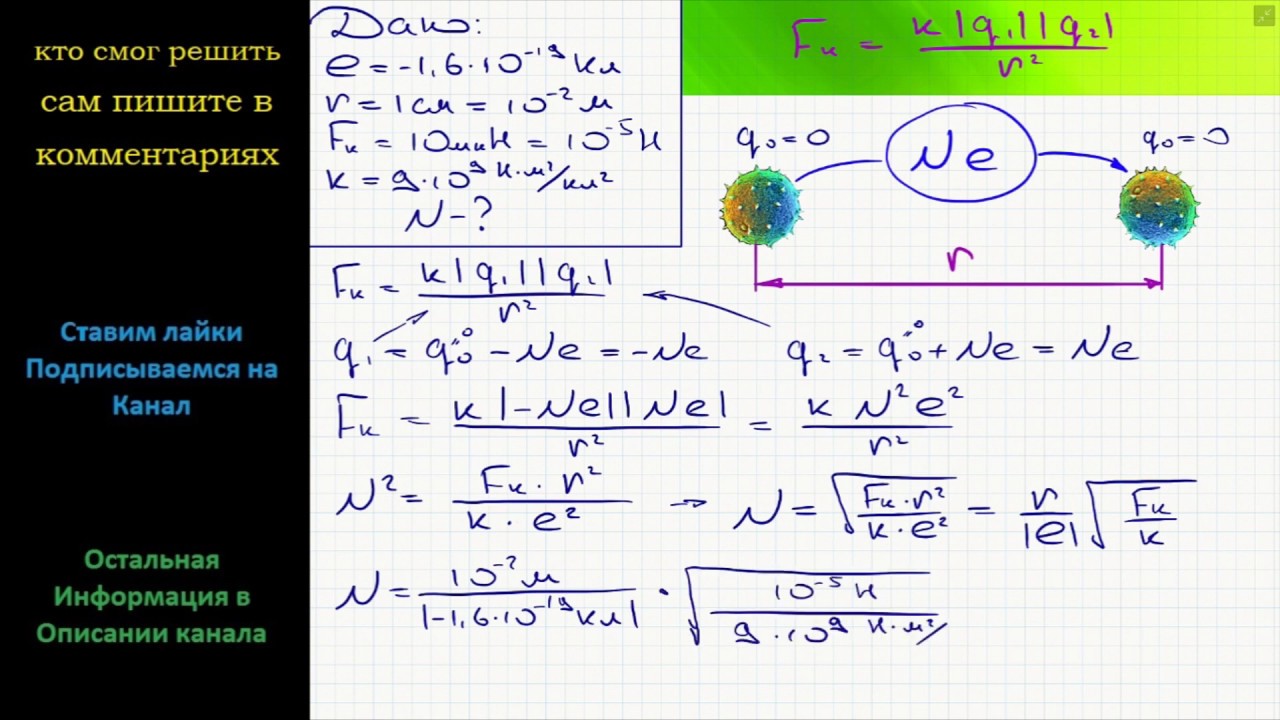 кто смог решить
сам пишите в
комментариях
Ставим лайки
Подписываемся на
Канал
Остальная
Информация в
Описании канала
Дано:
e = -1,6·10⁻¹⁹ Кл
r = 1 см = 10⁻² м
Fк = 10 мкН = 10⁻⁵ Н
k = 9·10⁹ Н·м²/Кл²
N - ?
Fк = k|q₁||q₂| / r²
q₀=0
Ne
q₀=0
r
Fк = k|q₁||q₂| / r²
q₁ = q₀⁰ - Ne = -Ne
q₂ = q₀⁰ + Ne = Ne
Fк = k|-Ne||Ne| / r² = k N² e² / r²
N² = Fк·r² / k·e² → N = √(Fк·r² / k·e²) = r/|e| √(Fк/k)
N = 10⁻² м / |-1,6·10⁻¹⁹ Кл| · √(10⁻⁵ Н / 9·10⁹ Н·м²/)